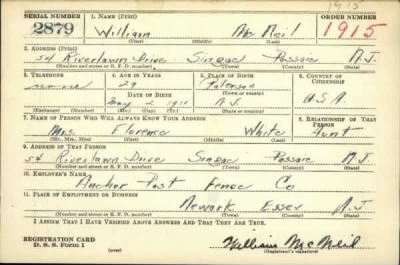 1915
SERIAL NUMBER 1. NAME (Print) ORDER NUMBER
2879 William Mc Neil 1915
(First) (Middle) (Last)
2. ADDRESS (Print)
54 Riverlawn Drive Singac Passaic N.J.
(Number and street or R. F. D. number) (Town) (County) (State)
3. TELEPHONE 4. AGE IN YEARS 5. PLACE OF BIRTH 6. COUNTRY OF CITIZENSHIP
29 Paterson
DATE OF BIRTH (Town or county)
May 2 1911 N.J. U.S.A.
(Exchange) (Number) (Mo.) (Day) (Yr.) (State or country)
7. NAME OF PERSON WHO WILL ALWAYS KNOW YOUR ADDRESS 8. RELATIONSHIP OF THAT PERSON
Mrs. Florence White Aunt
(Mr., Mrs., Miss) (First) (Middle) (Last)
9. ADDRESS OF THAT PERSON
54 Riverlawn Drive Singac Passaic N.J.
(Number and street or R. F. D. number) (Town) (County) (State)
10. EMPLOYER'S NAME
Anchor Post Fence Co
11. PLACE OF EMPLOYMENT OR BUSINESS
Newark Essex N.J.
(Number and street or R. F. D. number) (Town) (County) (State)
I AFFIRM THAT I HAVE VERIFIED ABOVE ANSWERS AND THAT THEY ARE TRUE.
REGISTRATION CARD William McNeil
D. S. S. Form 1 (over) (Registrant's signature)